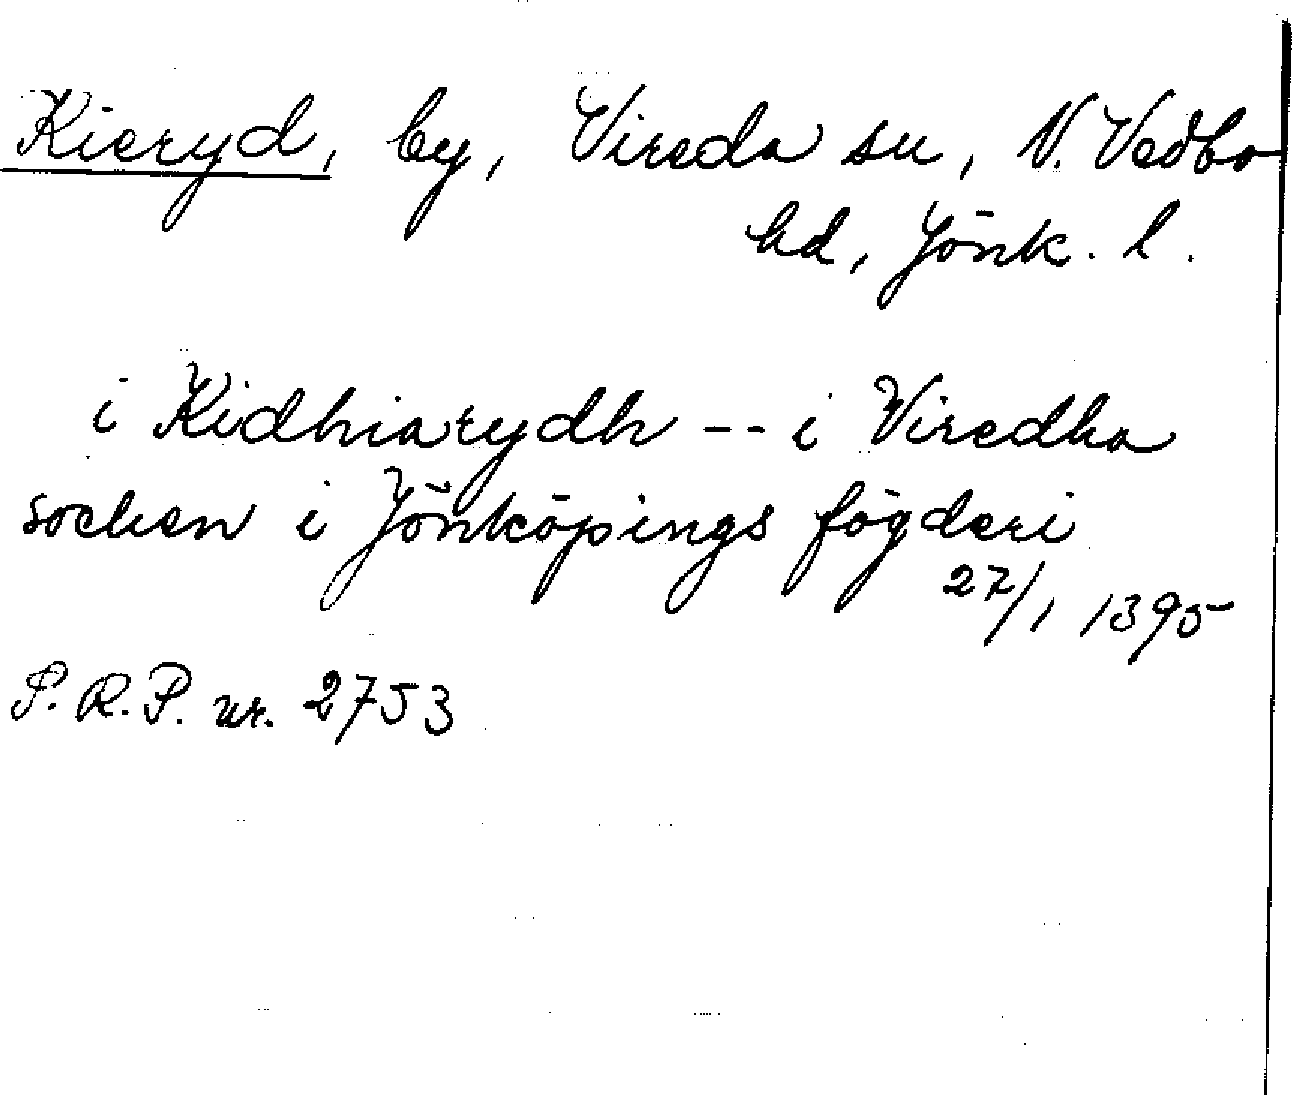 Kieryd, by, Vireda sn, N. Vedbo
hd, Jönk. l.
i Kidhiarydh -- i Viredha
socken i Jönköpings fögderi
27/1 1395
S.R.P. nr. 2753